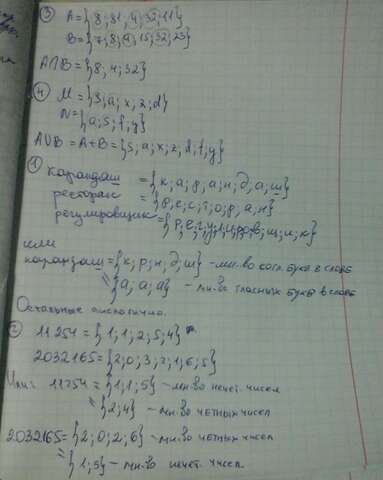 ③ A = {8; 31, 4; 32; 11}
B = {7; 8; 4; 15; 32; 23}
A∩B = {8; 4; 32}
④ M = {3; a; x; z; d}
N = {a; s; f; g}
AUB = A+B = {s, a; x; z, d, f, g}
① карандаш = {к; а; р; а; н; д, а; ш}
ресторан = {р, е; с; т; о; р, а, н}
регулировщик =
или
карандаш = {к; р; н; д; ш} - мн-во согл. букв в слове
= {а; а; а} - мн-во гласных букв в слове
Остальные аналогично.
② 11254 = {1; 1; 2; 5; 4}
2032165 = {2; 0; 3; 2; 1; 6; 5}
Или: 11254 = {1; 1; 5} - мн-во нечет. чисел
= {2; 4} - мн-во четных чисел
2032165 = {2; 0; 2; 6} - мн-во четных чисел
= {1; 5} - мн-во нечет. чисел.